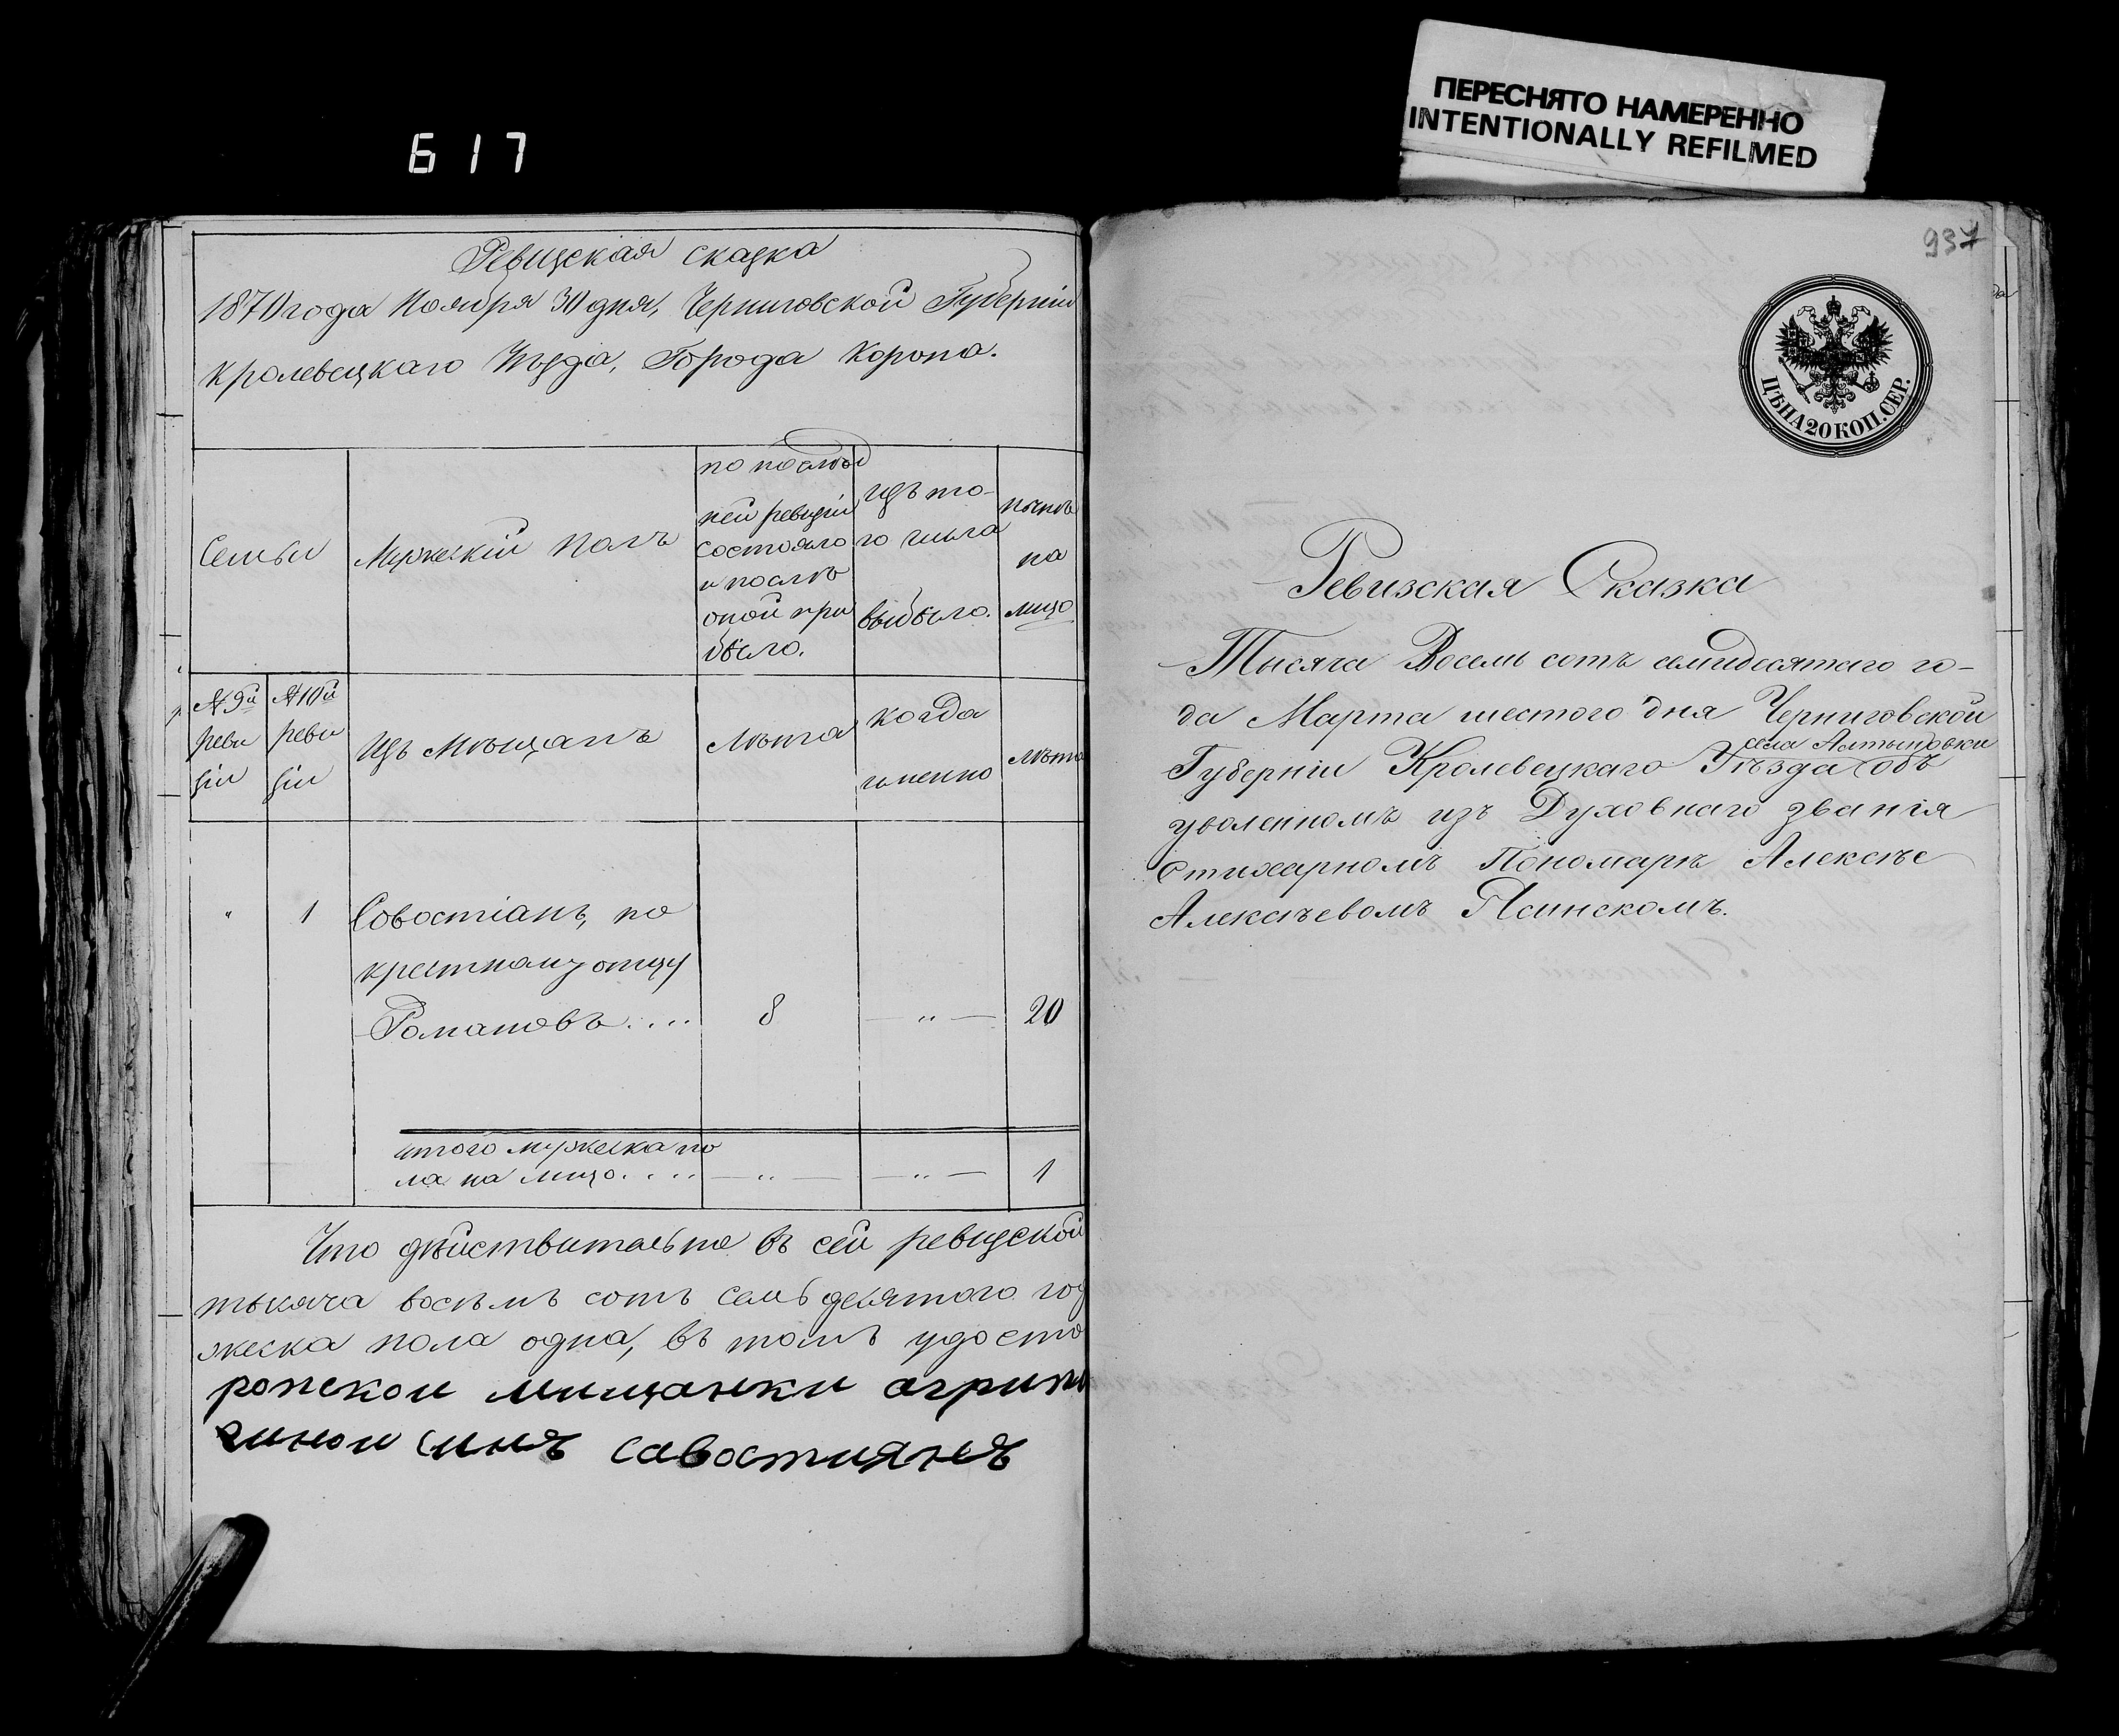 617
ПЕРЕСНЯТО НАМЕРЕННО
INTENTIONALLY REFILMED
Ревизская сказка
1870 года Ноября 30 дня, Черниговской Губерніи
Кролевецкаго Уѣзда, Города Коропа.
Семьи
Мужескій полъ
по послѣд
ней ревизіи
состояло
и послѣ
оной при
было.
изъ то-
го числа
выбыло.
нынѣ
на
лицо
№ 9й
реви
зіи
№ 10й
реви
зіи
Изъ мѣщанъ
Лѣта
когда
именно
Лѣта
" 1 Совостіанъ, по
крестному отцу
Романовъ.... 8 — " — 20
итого мужеска по
ла на лицо.... — " — — " — 1
Что дѣйствительно въ сей ревизской
тысяча восѣмъ сотъ семьдесятого год
жеска пола одна, въ томъ удосто
ропскои мищанки агрипи
синъ савостиянъ
937
ЦѢНА 20 КОП. СЕР.
Ревизская Сказка
Тысяча Восемь сотъ семидесятаго го-
да Марта шестого дня Черниговской
села Алтыновки
Губерніи Кролевецкаго Уѣзда объ
уволенномъ изъ Духовнаго званія
Стихарномъ Пономарѣ Алексѣе
Алексѣевомъ Ясинскомъ.